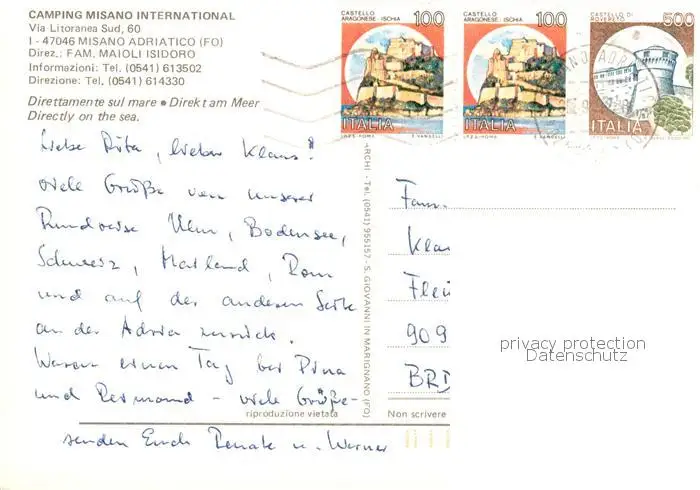 CAMPING MISANO INTERNATIONAL
Via Litoranea Sud, 60
I - 47046 MISANO ADRIATICO (FO)
Direz.: FAM. MAIOLI ISIDORO
Informazioni: Tel. (0541) 613502
Direzione: Tel. (0541) 614330
Direttamente sul mare • Direkt am Meer
Directly on the sea.
CASTELLO
ARAGONESE - ISCHIA
100
ITALIA
CASTELLO
ARAGONESE - ISCHIA
100
ITALIA
CASTELLO DI
ROVERETO
500
ITALIA
Liebe Rita, lieber Klaus!
viele Grüße von unserer
Rundreise Ulm, Bodensee,
Schweiz, Mailand, Rom
und auf der anderen Seite
an der Adria zurück.
Waren einen Tag bei Pina
und Reimond - viele Grüße -
senden Euch Renate u. Werner
ARCHI - Tel. (0541) 955157 - S. GIOVANNI IN MARIGNANO (FO)
riproduzione vietata
Non scrivere
Fam.
Klau
Fleu
909
BRD
privacy protection
Datenschutz